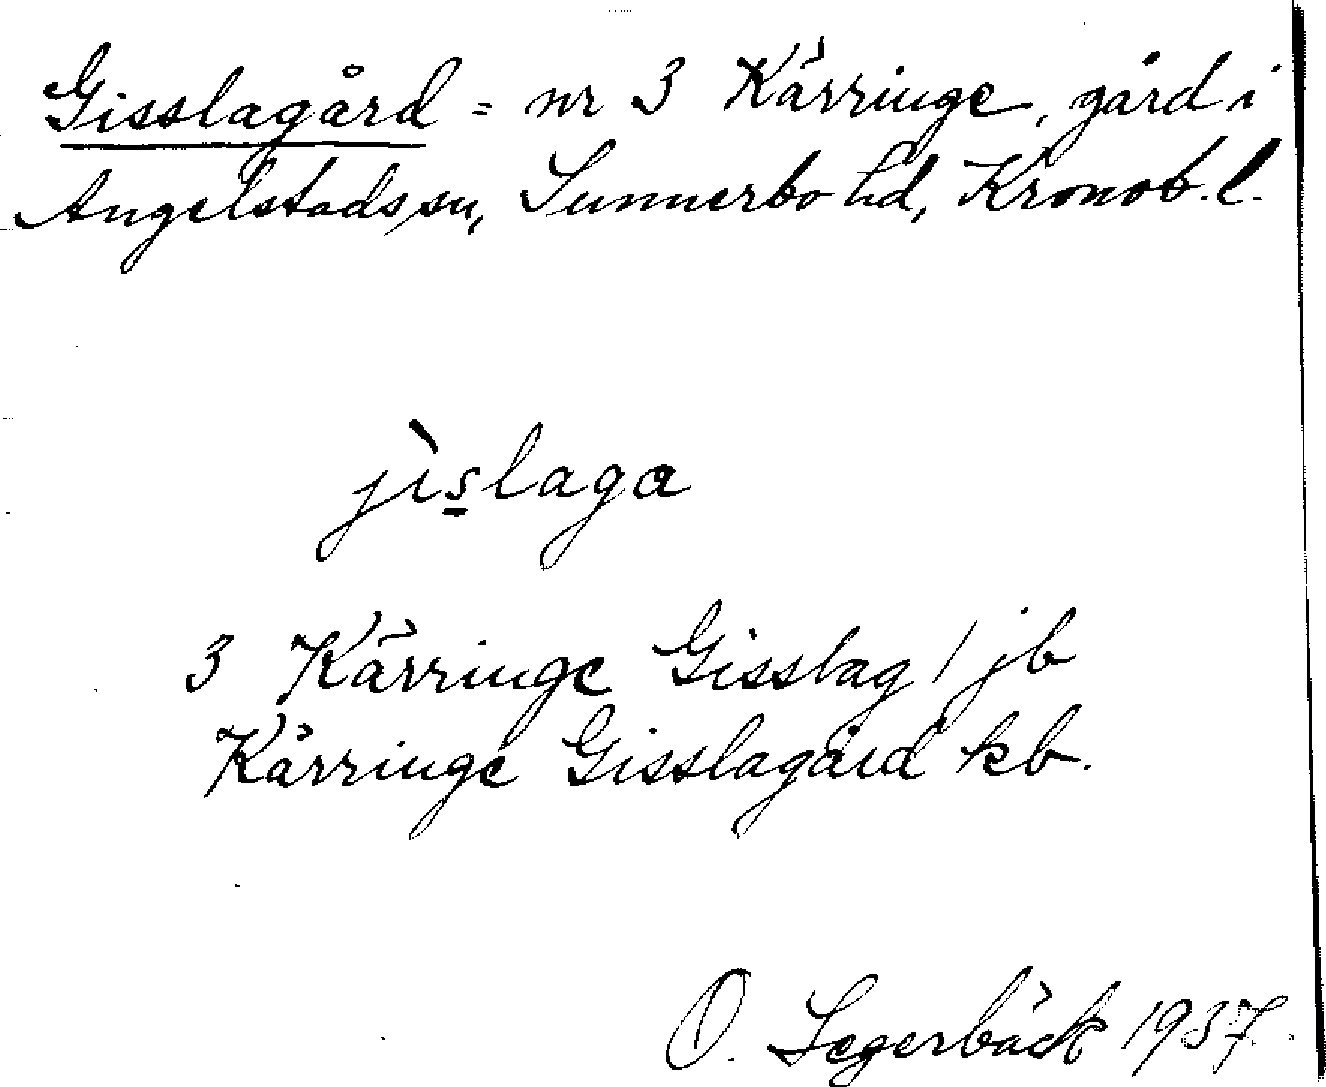 Gisslagård = nr 3 Kärringe, gård i
Angelstads sn, Sunnerbo hd, Kronob. l.
jìs̲laga
3 Kärringe Gisslag / jb
Kärringe Gisslagård kb.
O. Segerbäck 1937.